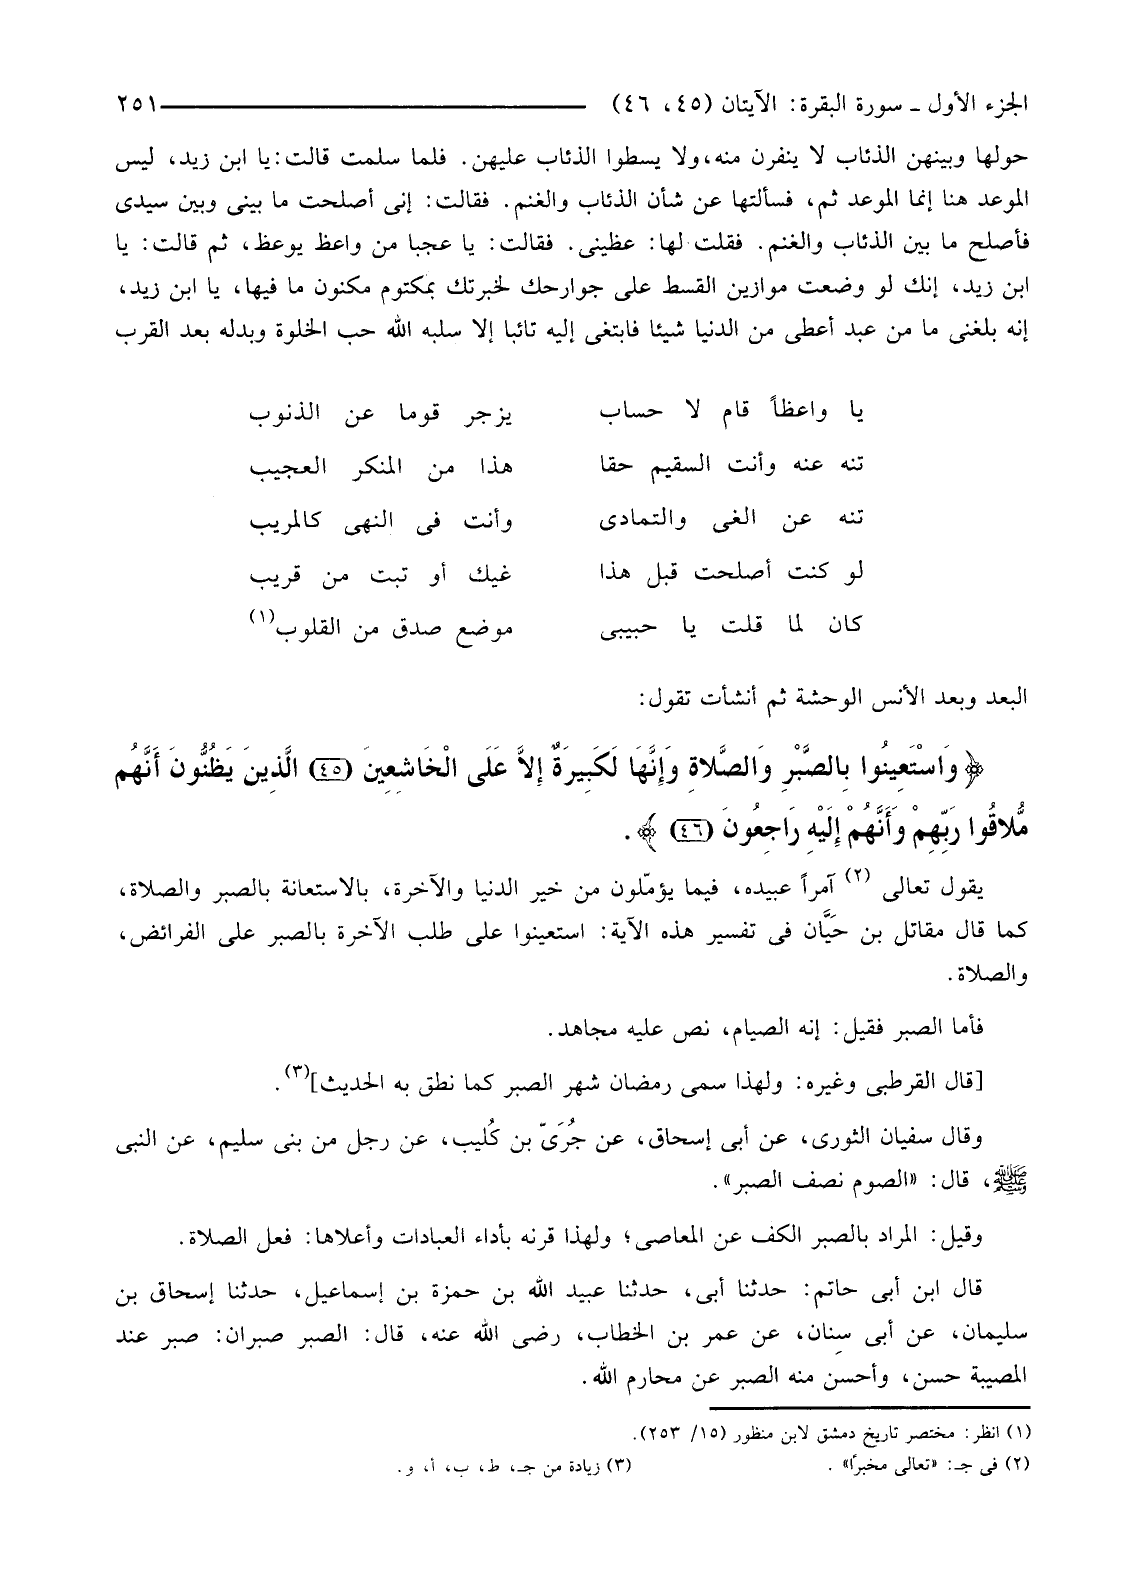 الجزء الأول ـ سورة البقرة: الآيتان (٤٥، ٤٦) ٢٥١
حولها وبينهن الذئاب لا ينفرن منه،ولا يسطوا الذئاب عليهن. فلما سلمت قالت:يا ابن زيد، ليس
الموعد هنا إنما الموعد ثم، فسألتها عن شأن الذئاب والغنم. فقالت: إنى أصلحت ما بينى وبين سيدى
فأصلح ما بين الذئاب والغنم. فقلت لها: عظينى. فقالت: يا عجبا من واعظ يوعظ، ثم قالت: يا
ابن زيد، إنك لو وضعت موازين القسط على جوارحك لخبرتك بمكتوم مكنون ما فيها، يا ابن زيد،
إنه بلغنى ما من عبد أعطى من الدنيا شيئا فابتغى إليه تائبا إلا سلبه الله حب الخلوة وبدله بعد القرب
يا واعظاً قام لا حساب يزجر قوما عن الذنوب
تنه عنه وأنت السقيم حقا هذا من المنكر العجيب
تنه عن الغى والتمادى وأنت فى النهى كالمريب
لو كنت أصلحت قبل هذا غيك أو تبت من قريب
كان لما قلت يا حبيبى موضع صدق من القلوب(١)
البعد وبعد الأنس الوحشة ثم أنشأت تقول:
﴿ وَاسْتَعِينُوا بِالصَّبْرِ وَالصَّلاةِ وَإِنَّهَا لَكَبِيرَةٌ إِلاَّ عَلَى الْخَاشِعِينَ (٤٥) الَّذِينَ يَظُنُّونَ أَنَّهُم
مُّلاقُوا رَبِّهِمْ وَأَنَّهُمْ إِلَيْهِ رَاجِعُونَ (٤٦) ﴾ .
يقول تعالى (٢) آمراً عبيده، فيما يؤمّلون من خير الدنيا والآخرة، بالاستعانة بالصبر والصلاة،
كما قال مقاتل بن حَيَّان فى تفسير هذه الآية: استعينوا على طلب الآخرة بالصبر على الفرائض،
والصلاة.
فأما الصبر فقيل: إنه الصيام، نص عليه مجاهد.
[قال القرطبى وغيره: ولهذا سمى رمضان شهر الصبر كما نطق به الحديث](٣).
وقال سفيان الثورى، عن أبى إسحاق، عن جُرَىّ بن كُليب، عن رجل من بنى سليم، عن النبى
ﷺ، قال: «الصوم نصف الصبر».
وقيل: المراد بالصبر الكف عن المعاصى؛ ولهذا قرنه بأداء العبادات وأعلاها: فعل الصلاة.
قال ابن أبى حاتم: حدثنا أبى، حدثنا عبيد الله بن حمزة بن إسماعيل، حدثنا إسحاق بن
سليمان، عن أبى سِنان، عن عمر بن الخطاب، رضى الله عنه، قال: الصبر صبران: صبر عند
المصيبة حسن، وأحسن منه الصبر عن محارم الله.
(١) انظر: مختصر تاريخ دمشق لابن منظور (١٥/ ٢٥٣).
(٢) فى جـ: «تعالى مخبرًا» . (٣) زيادة من جـ، ط، ب، أ، و.